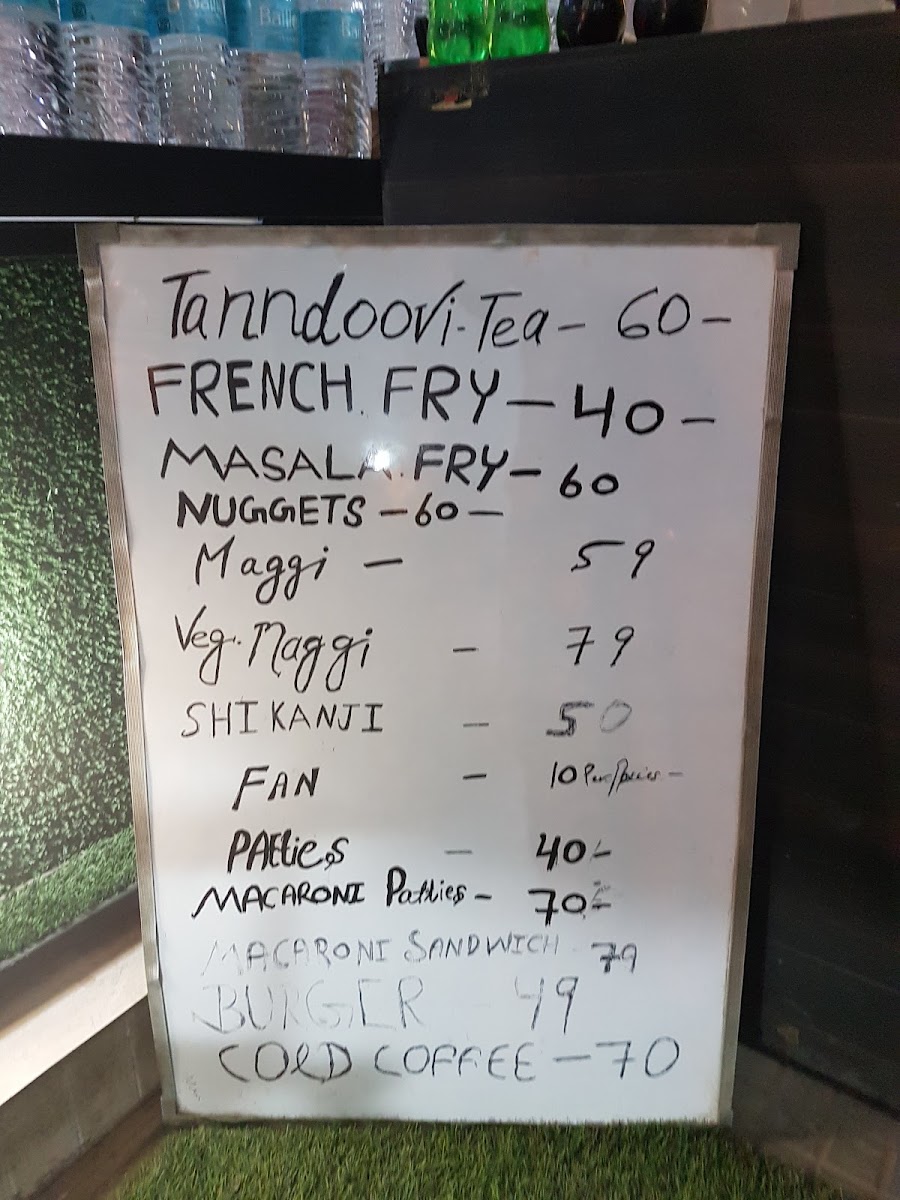 Bailley
Tanndoovi-Tea - 60 -
FRENCH. FRY - 40 -
MASALA. FRY - 60
NUGGETS - 60 -
Maggi - 59
Veg. Maggi - 79
SHIKANJI - 50
FAN - 10 Per/
Patties - 40/-
MACARONI Patties - 70/-
MACARONI SANDWICH 79
BURGER 49
COLD COFFEE - 70